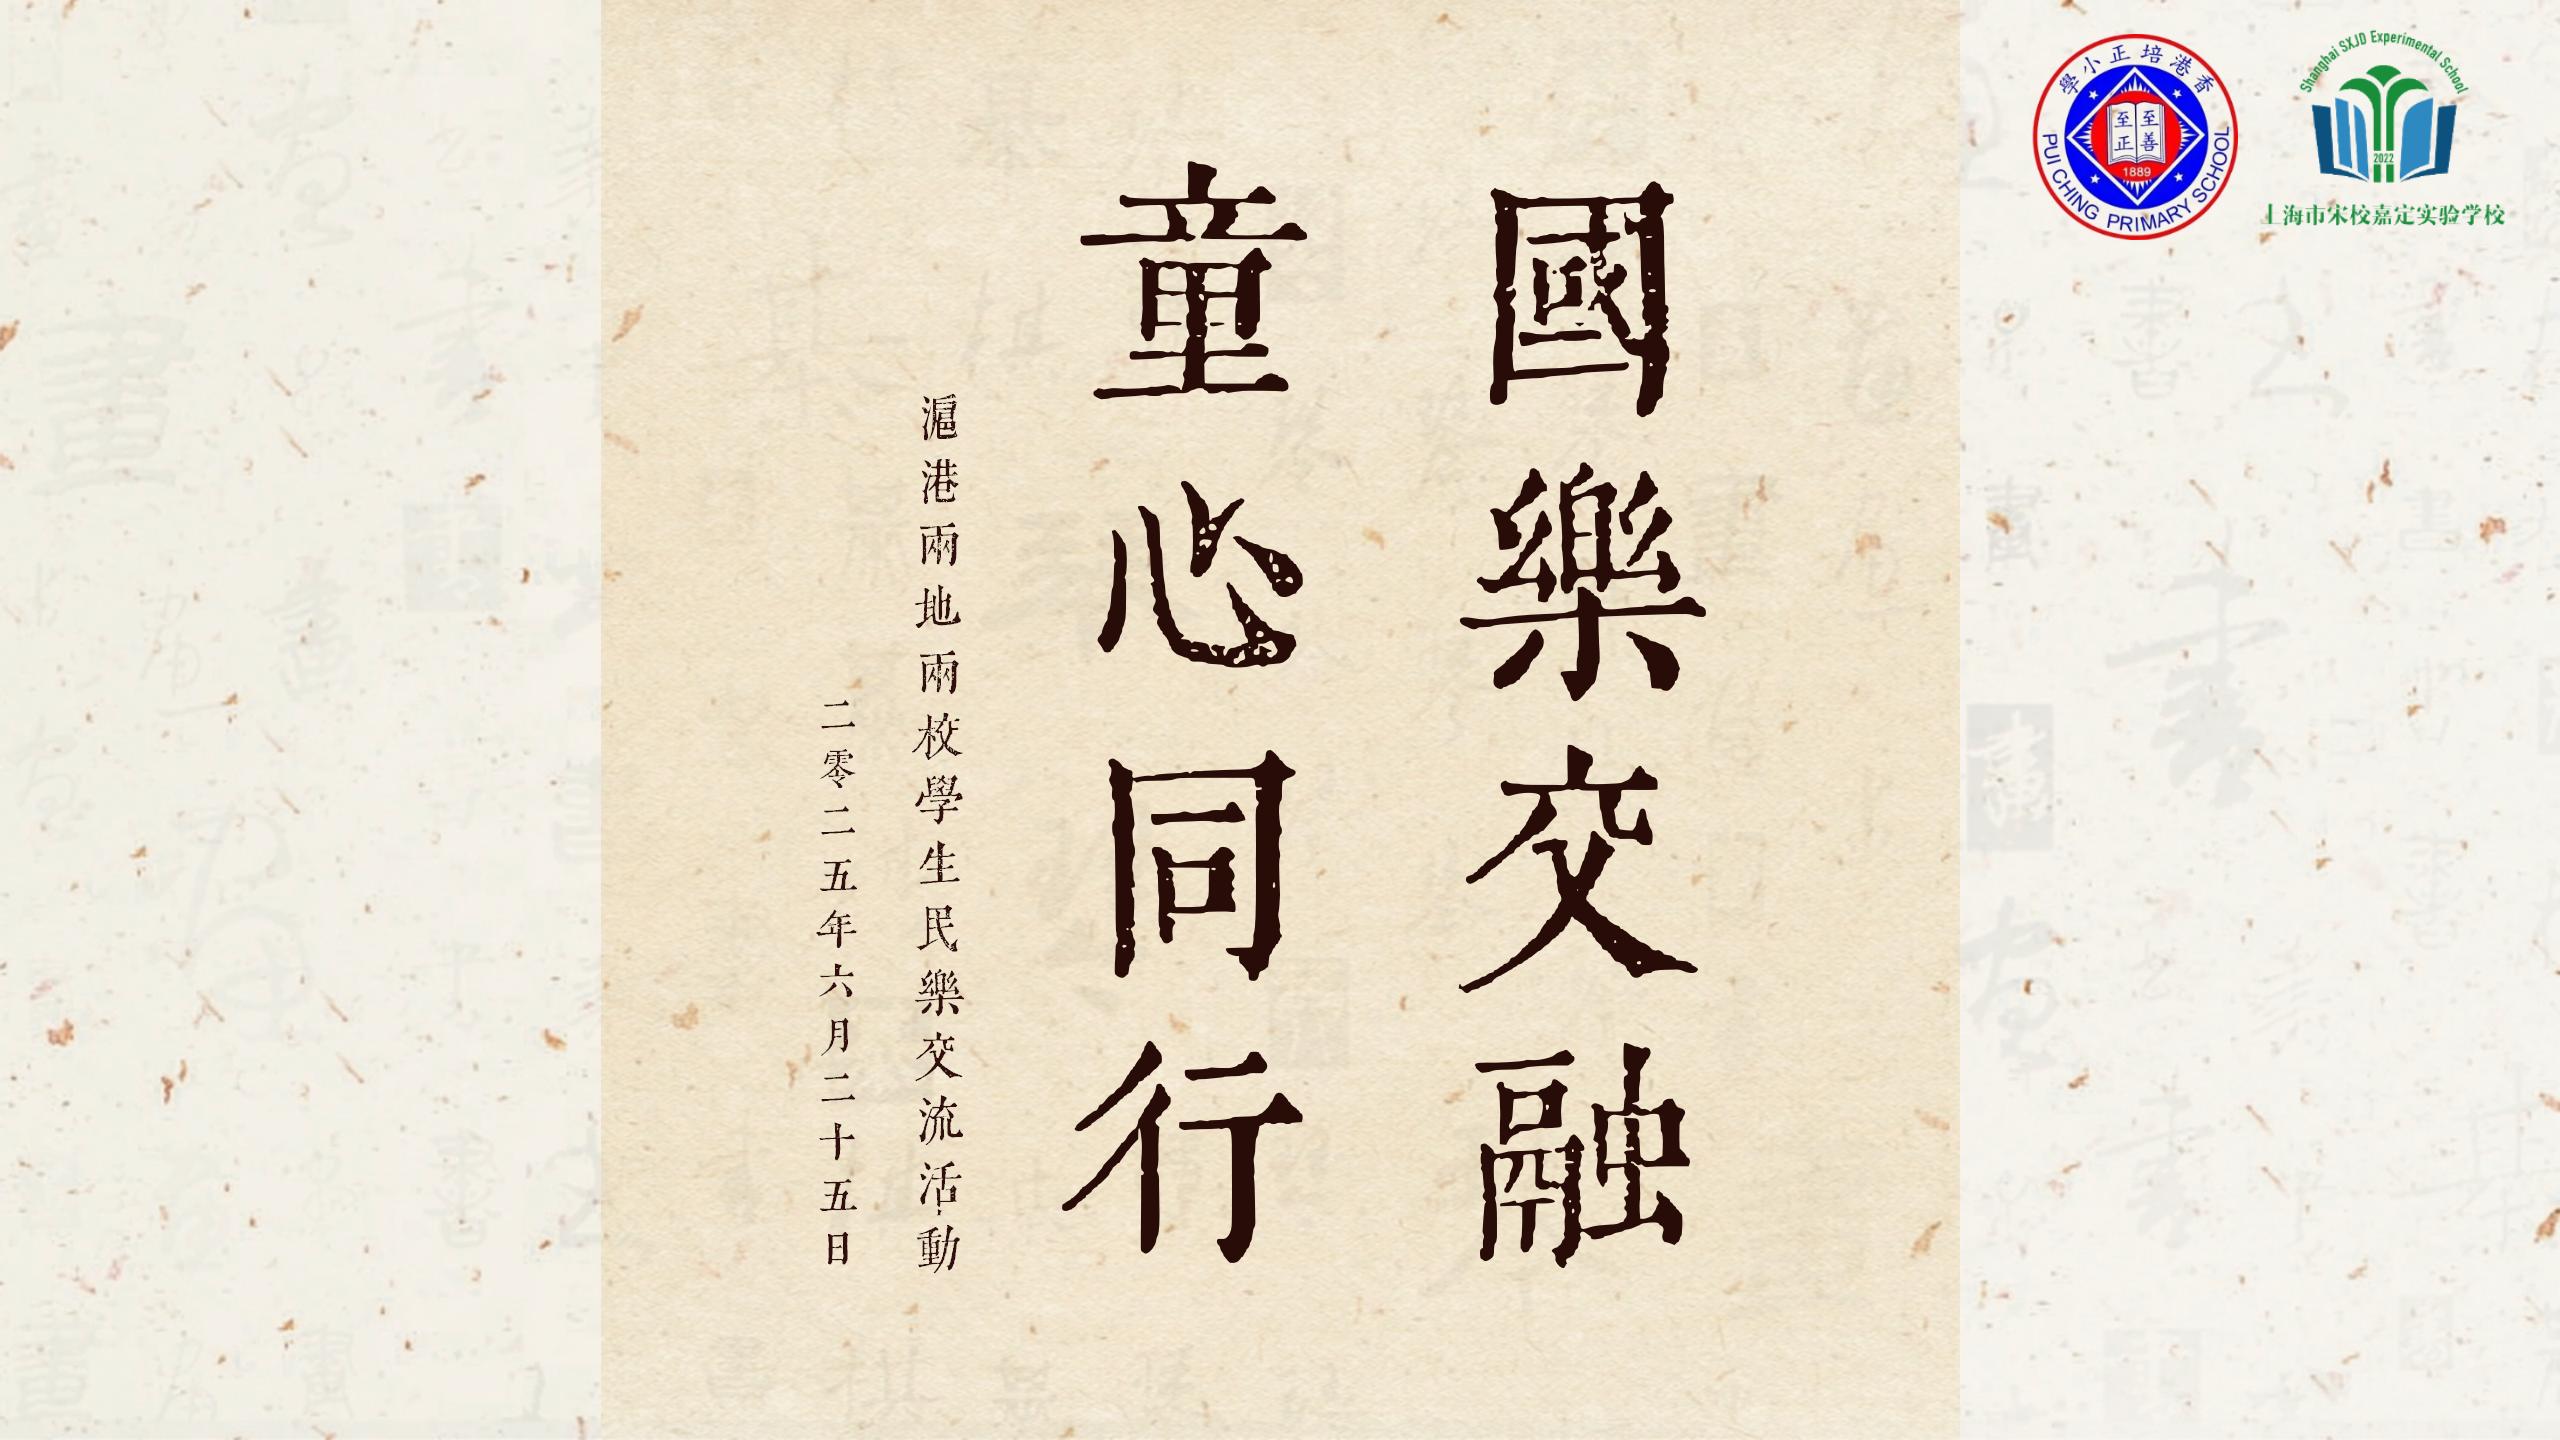 國樂交融
童心同行
滬港兩地兩校學生民樂交流活動
二零二五年六月二十五日
香港培正小學
至善
至正
1889
PUI CHING PRIMARY SCHOOL
Shanghai SXJD Experimental School
2022
上海市宋校嘉定实验学校